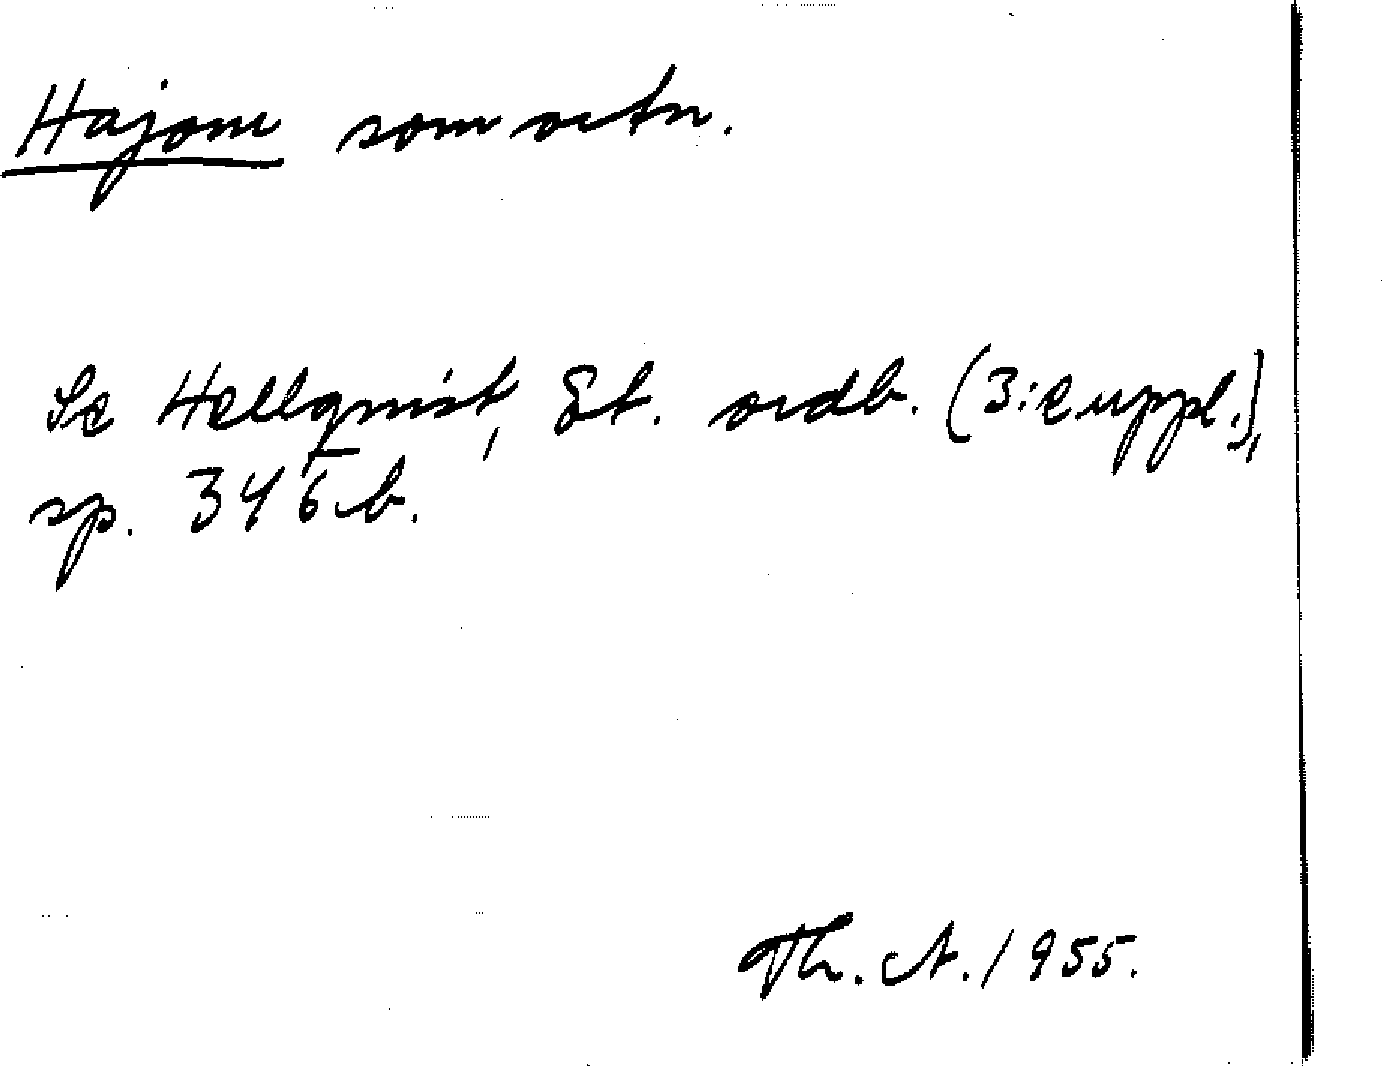 Hajom som ortn.
Se Hellquist, Et. ordb. (3:e uppl.),
sp. 346 b.
Th. A. 1955.